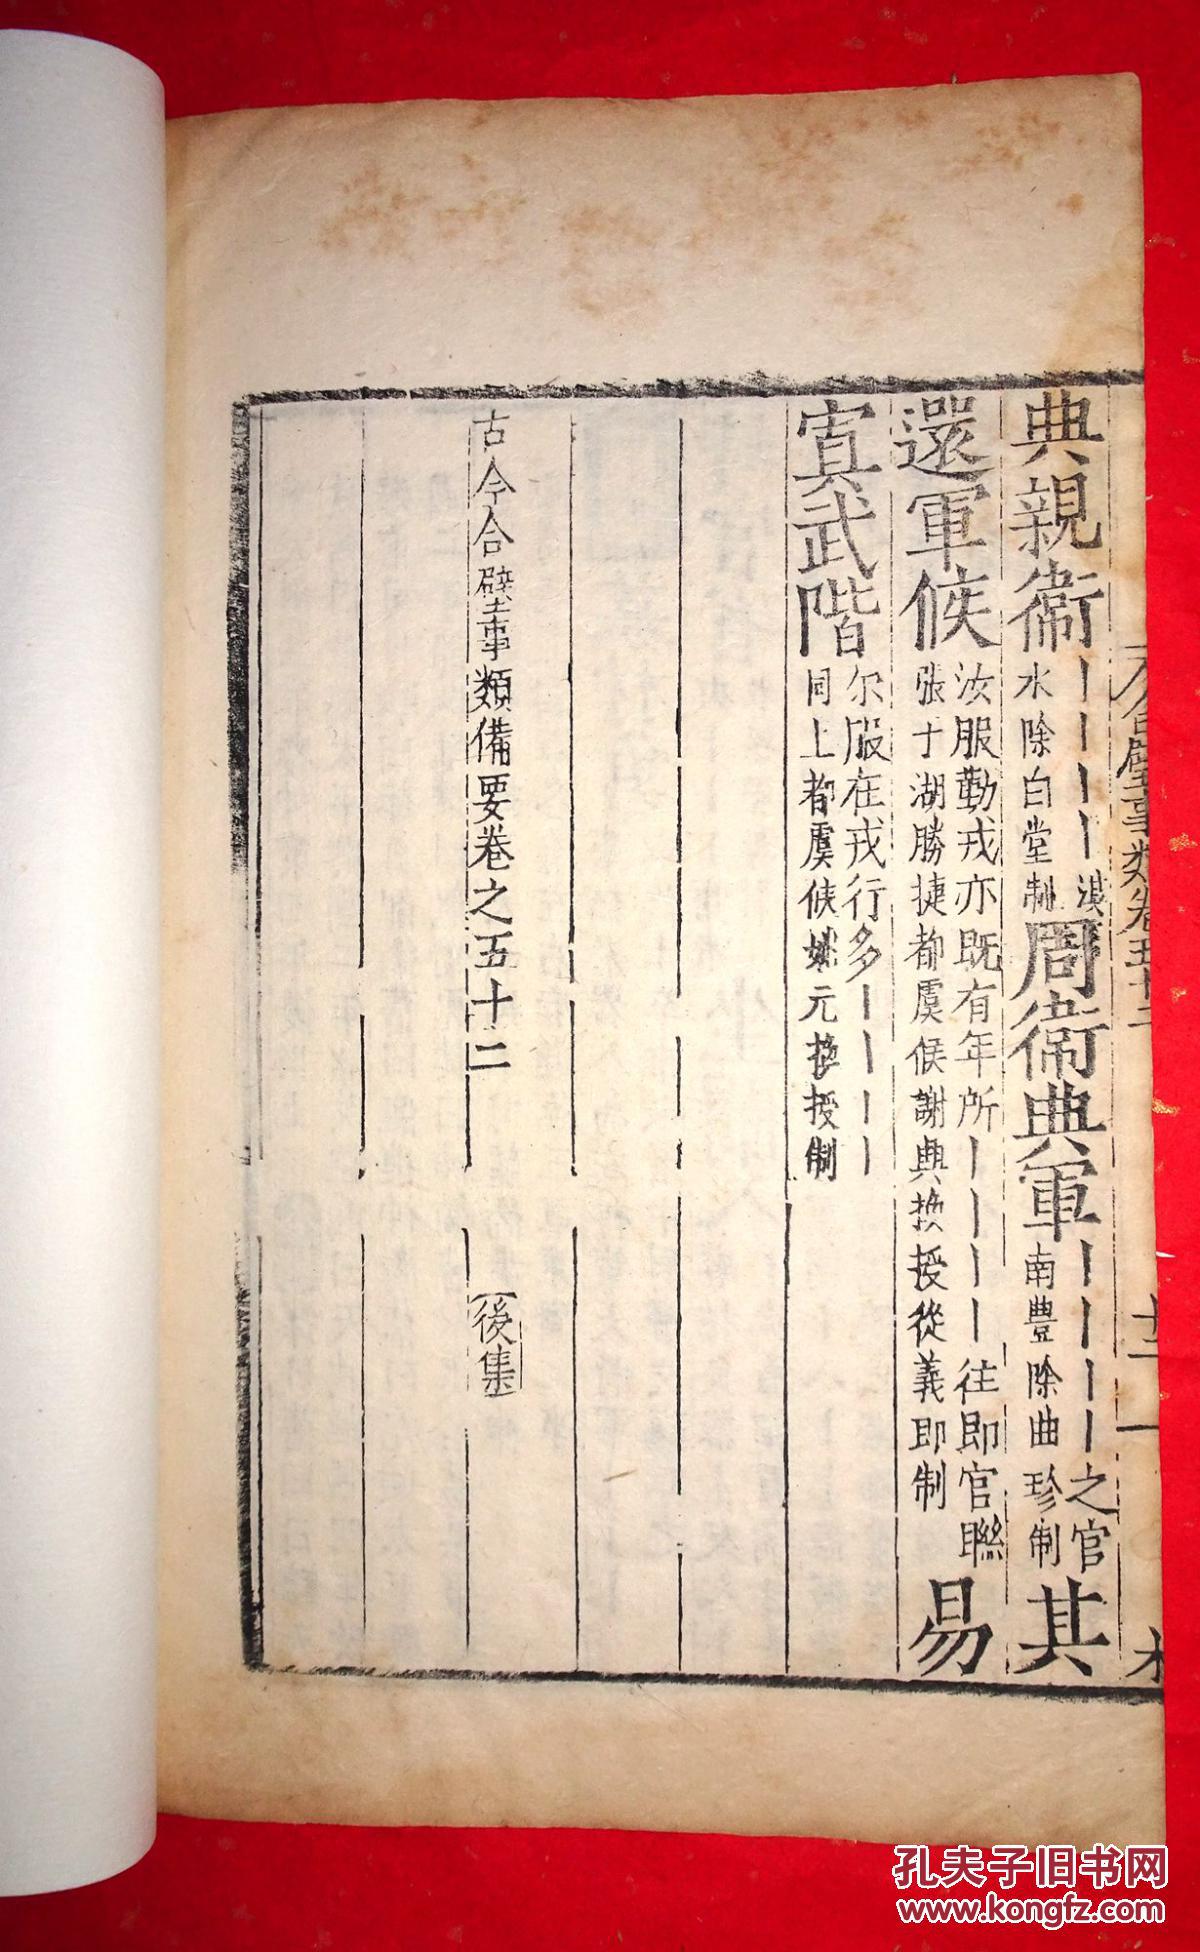 典親衛｜｜｜｜漢水除白堂制周衛典軍｜｜｜｜之官南豊除曲珍制其
還軍候汝服勤戎亦既有年所｜｜｜｜往即官聯張于湖勝捷都虞候謝興換授從義即制易
寘武階尔服在戎行多｜｜｜｜同上都虞候姚元換授制
古今合璧事類備要卷之五十二 後集
合璧事類卷五十二
孔夫子旧书网
www.kongfz.com